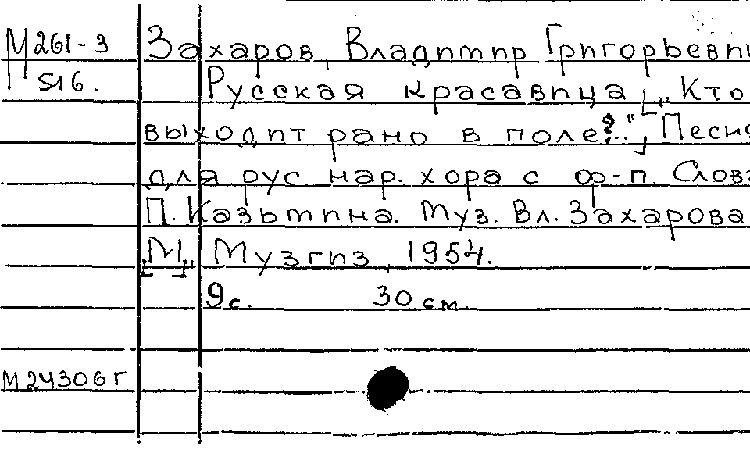 М261-3
516.
Захаров, Владимир Григорьеви
Русская красавица. [„Кто
выходит рано в поле?.."] Песня
для рус. нар. хора с ф-п. Слова
П. Казьмина. Муз. Вл. Захарова.
[М.], Музгиз, 1954.
9с. 30 см.
М24306г